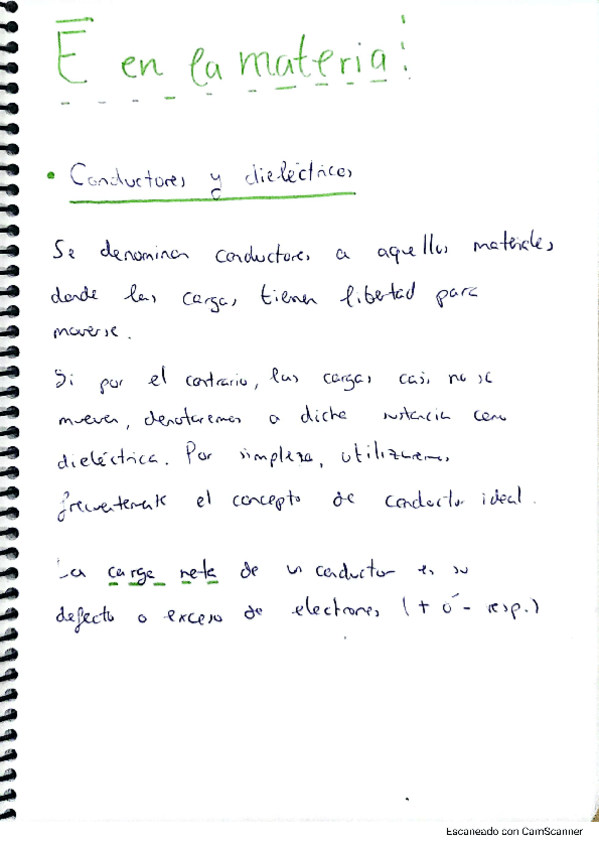 E en la materia!
• Conductores y dieléctricos
Se denominan conductores a aquellos materiales
donde las cargas tienen libertad para
moverse.
Si por el contrario, las cargas casi no se
mueven, denotaremos a dicha sustancia como
dieléctrica. Por simpleza, utilizaremos
frecuentemente el concepto de conductor ideal.
La carga neta de un conductor es su
defecto o exceso de electrones (+ ó - resp.)
Escaneado con CamScanner